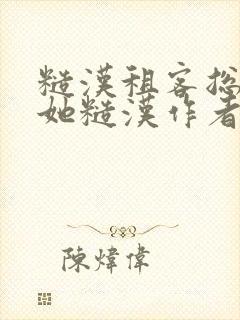 糙漢租客总
她糙漢作者
陳煒偉